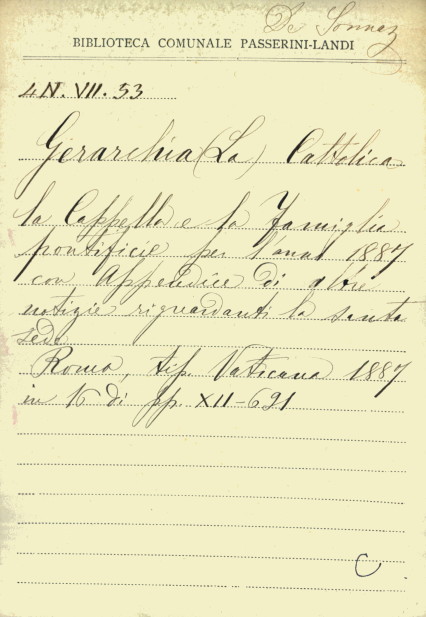 De Sonnaz
BIBLIOTECA COMUNALE PASSERINI-LANDI
4N. VII. 53
Gerarchia (La) Cattolica
la Cappella e la Famiglia
pontificie per l'anno 1887
con appendice di altre
notizie riguardanti la santa
sede
Roma, tip. Vaticana 1887
in 16 di pp. XII-621
C